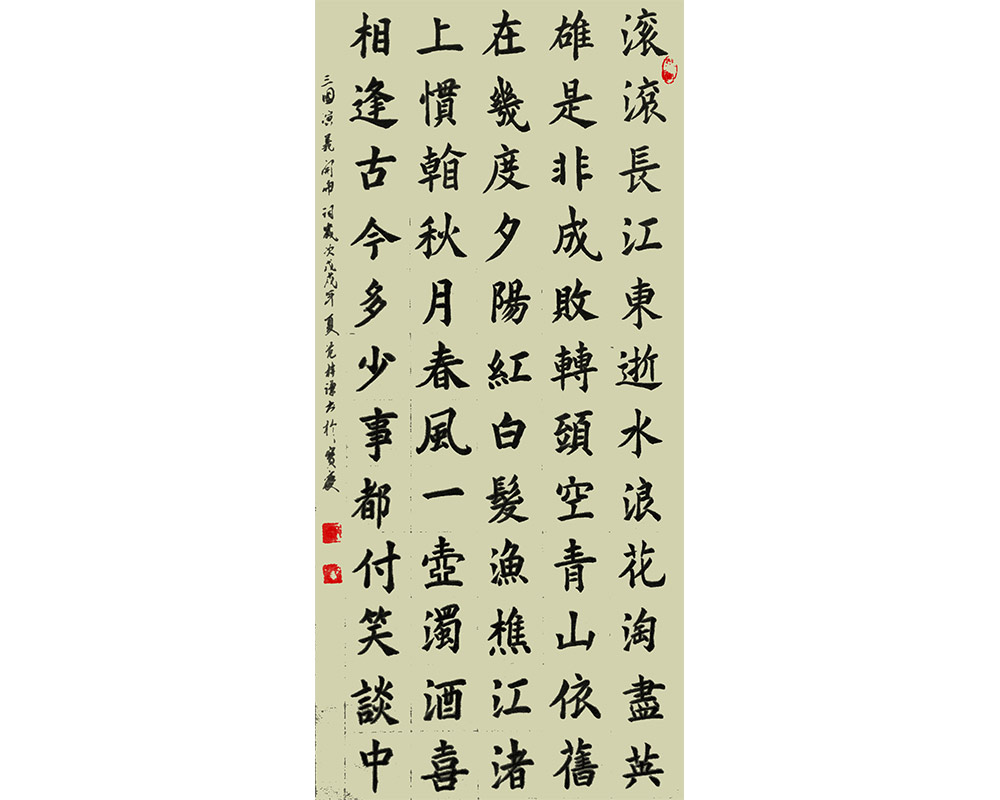 滚滾長江東逝水浪花淘盡英
雄是非成敗轉頭空青山依舊
在幾度夕陽紅白髮漁樵江渚
上慣看秋月春風一壺濁酒喜
相逢古今多少事都付笑談中
三国演義開词歲次戊戌年夏桂谦书於寶慶